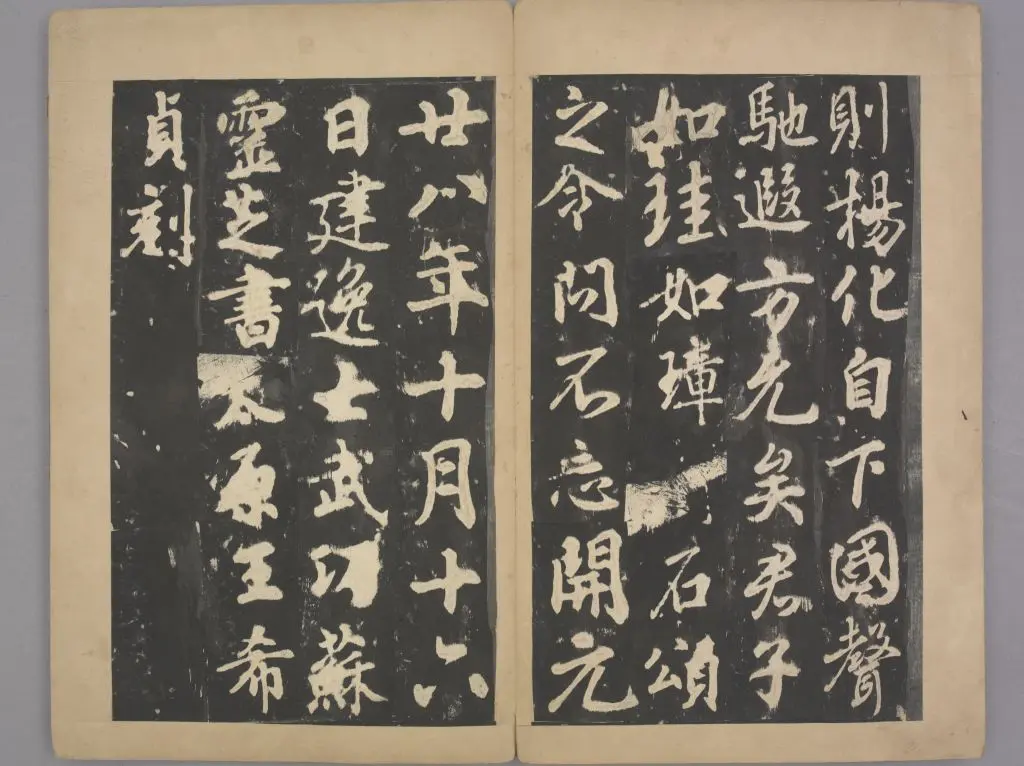 則楊化自下國聲
馳遐方允矣君子
如珪如璋石頌
之令問不忘開元
廿八年十月十六
日建逸士武功蘇
靈芝書太原王希
貞刻